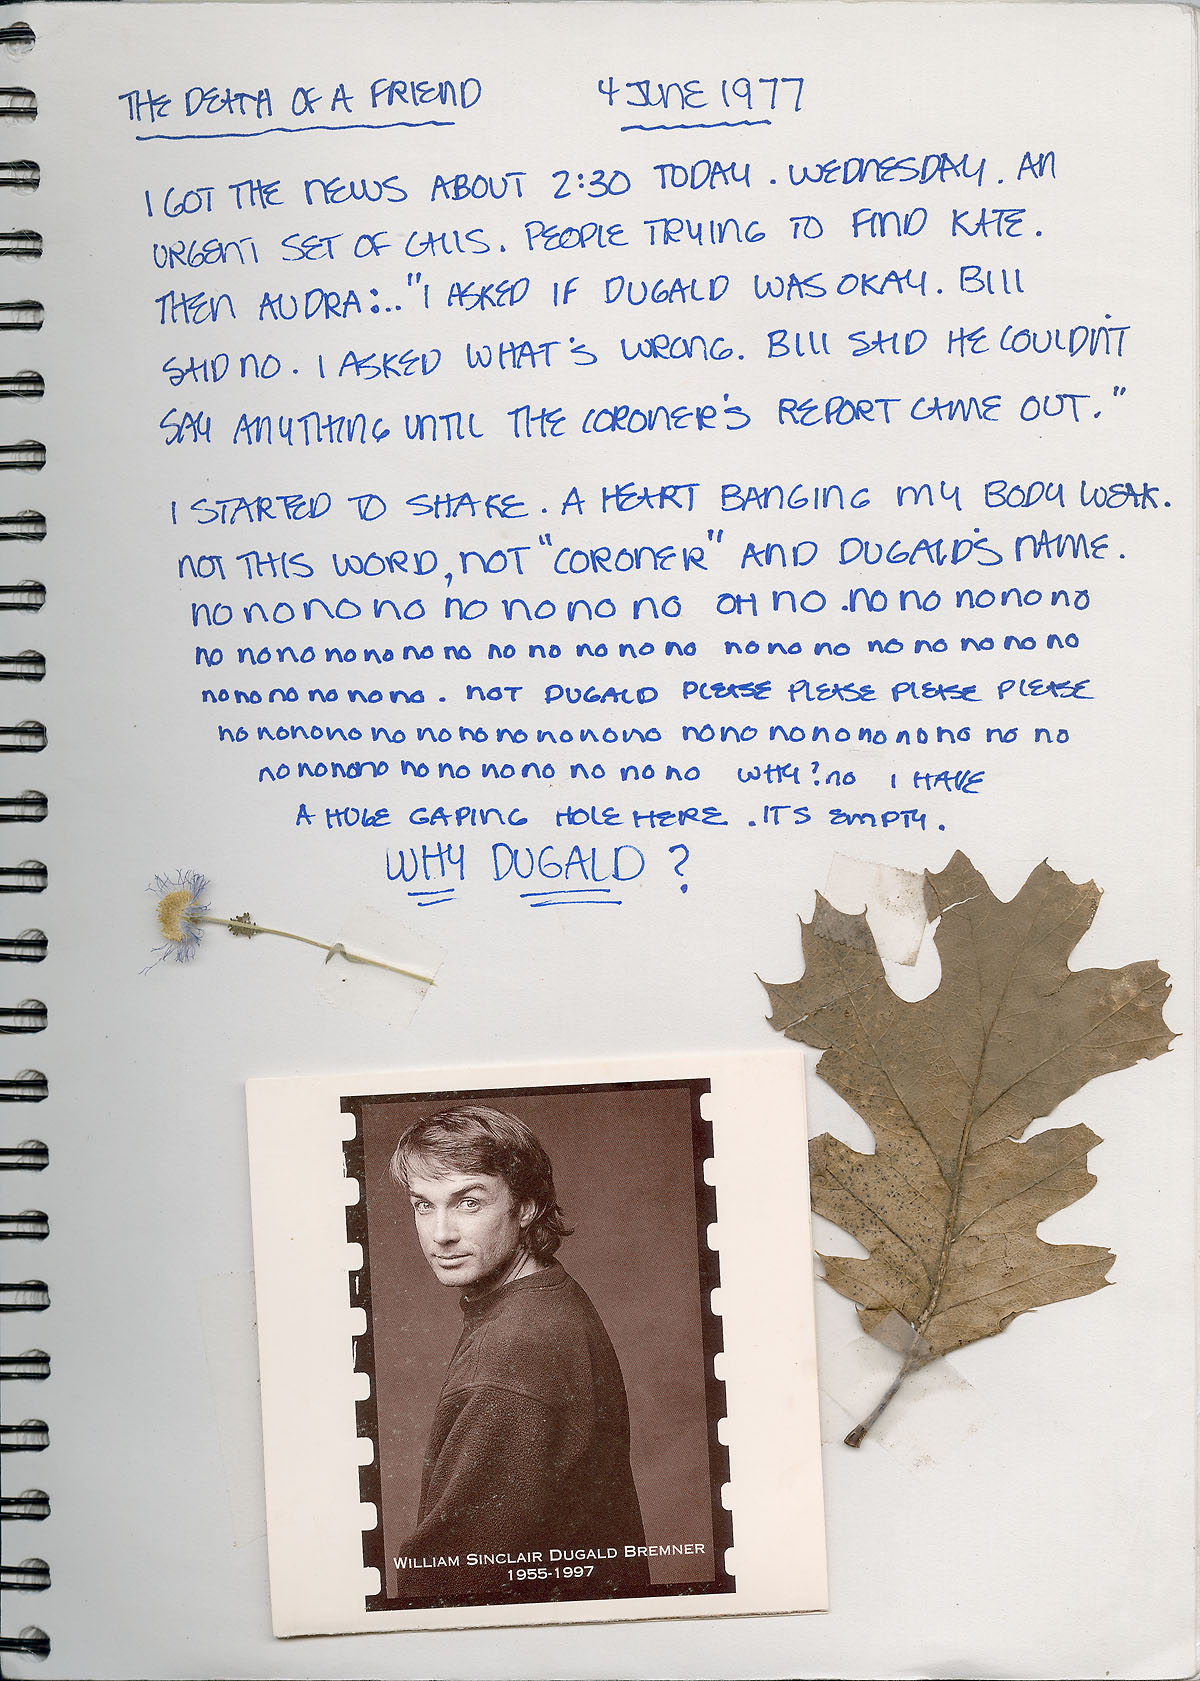 THE DEATH OF A FRIEND 4 JUNE 1977
I GOT THE NEWS ABOUT 2:30 TODAY. WEDNESDAY. AN
URGENT SET OF CALLS. PEOPLE TRYING TO FIND KATE.
THEN AUDRA:.. "I ASKED IF DUGALD WAS OKAY. BILL
SAID NO. I ASKED WHAT'S WRONG. BILL SAID HE COULDN'T
SAY ANYTHING UNTIL THE CORONER'S REPORT CAME OUT."
I STARTED TO SHAKE. A HEART BANGING MY BODY WEAK.
NOT THIS WORD, NOT "CORONER" AND DUGALD'S NAME.
NO NO NO NO NO NO NO NO OH NO. NO NO NO NO NO
NO NO NO NO NO NO NO NO NO NO NO NO NO NO NO NO NO NO NO NO
NO NO NO NO NO NO. NOT DUGALD PLEASE PLEASE PLEASE PLEASE
NO NO NO NO NO NO NO NO NO NO NO NO NO NO NO NO NO NO NO NO NO
NO NO NO NO NO NO NO NO NO NO NO WHY? NO I HAVE
A HUGE GAPING HOLE HERE. IT'S EMPTY.
WHY DUGALD?
WILLIAM SINCLAIR DUGALD BREMNER
1955-1997